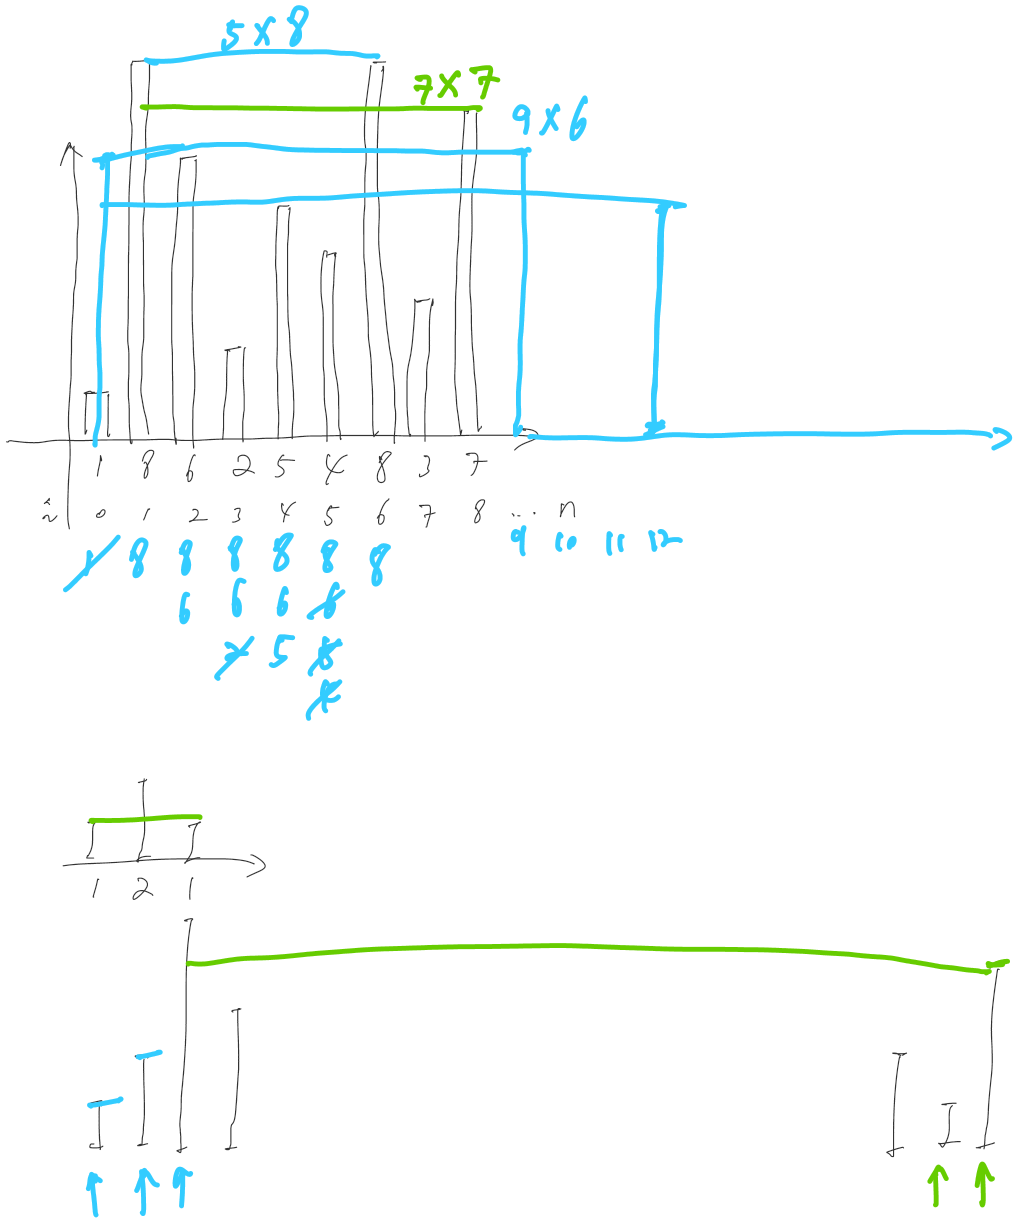 5 x 8
7 x 7
9 x 6
1 8 6 2 5 4 8 3 7
i 0 1 2 3 4 5 6 7 8 ... n
9 10 11 12
1 8 8 8 8 8 8
6 6 6 6
2 5 5
4
1 2 1